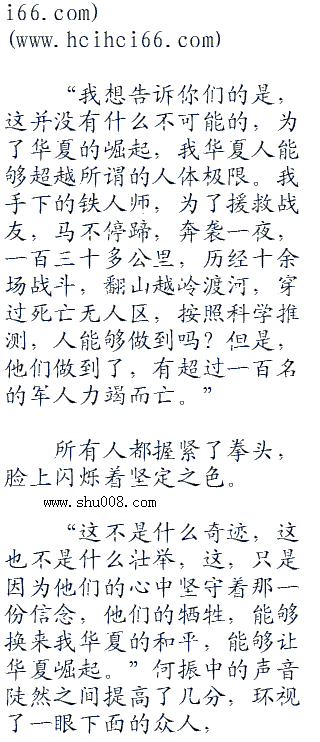 i66.com)
(www.hcihci66.com)
“我想告诉你们的是，
这并没有什么不可能的，为
了华夏的崛起，我华夏人能
够超越所谓的人体极限。我
手下的铁人师，为了援救战
友，马不停蹄，奔袭一夜，
一百三十多公里，历经十余
场战斗，翻山越岭渡河，穿
过死亡无人区，按照科学推
测，人能够做到吗？但是，
他们做到了，有超过一百名
的军人力竭而亡。”
所有人都握紧了拳头，
脸上闪烁着坚定之色。
www.shu008.com
“这不是什么奇迹，这
也不是什么壮举，这，只是
因为他们的心中坚守着那一
份信念，他们的牺牲，能够
换来我华夏的和平，能够让
华夏崛起。”何振中的声音
陡然之间提高了几分，环视
了一眼下面的众人，